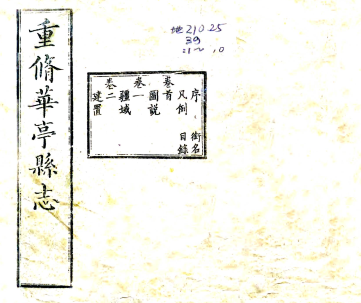 重脩華亭縣志
地210 25
39
:1~ .0
序 銜名
凡例 目錄
卷首
圖説
卷一
疆域
卷二
建置